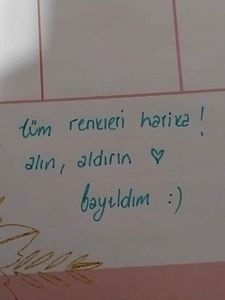 tüm renkleri harika!
alın, aldırın ♡
bayıldım :)